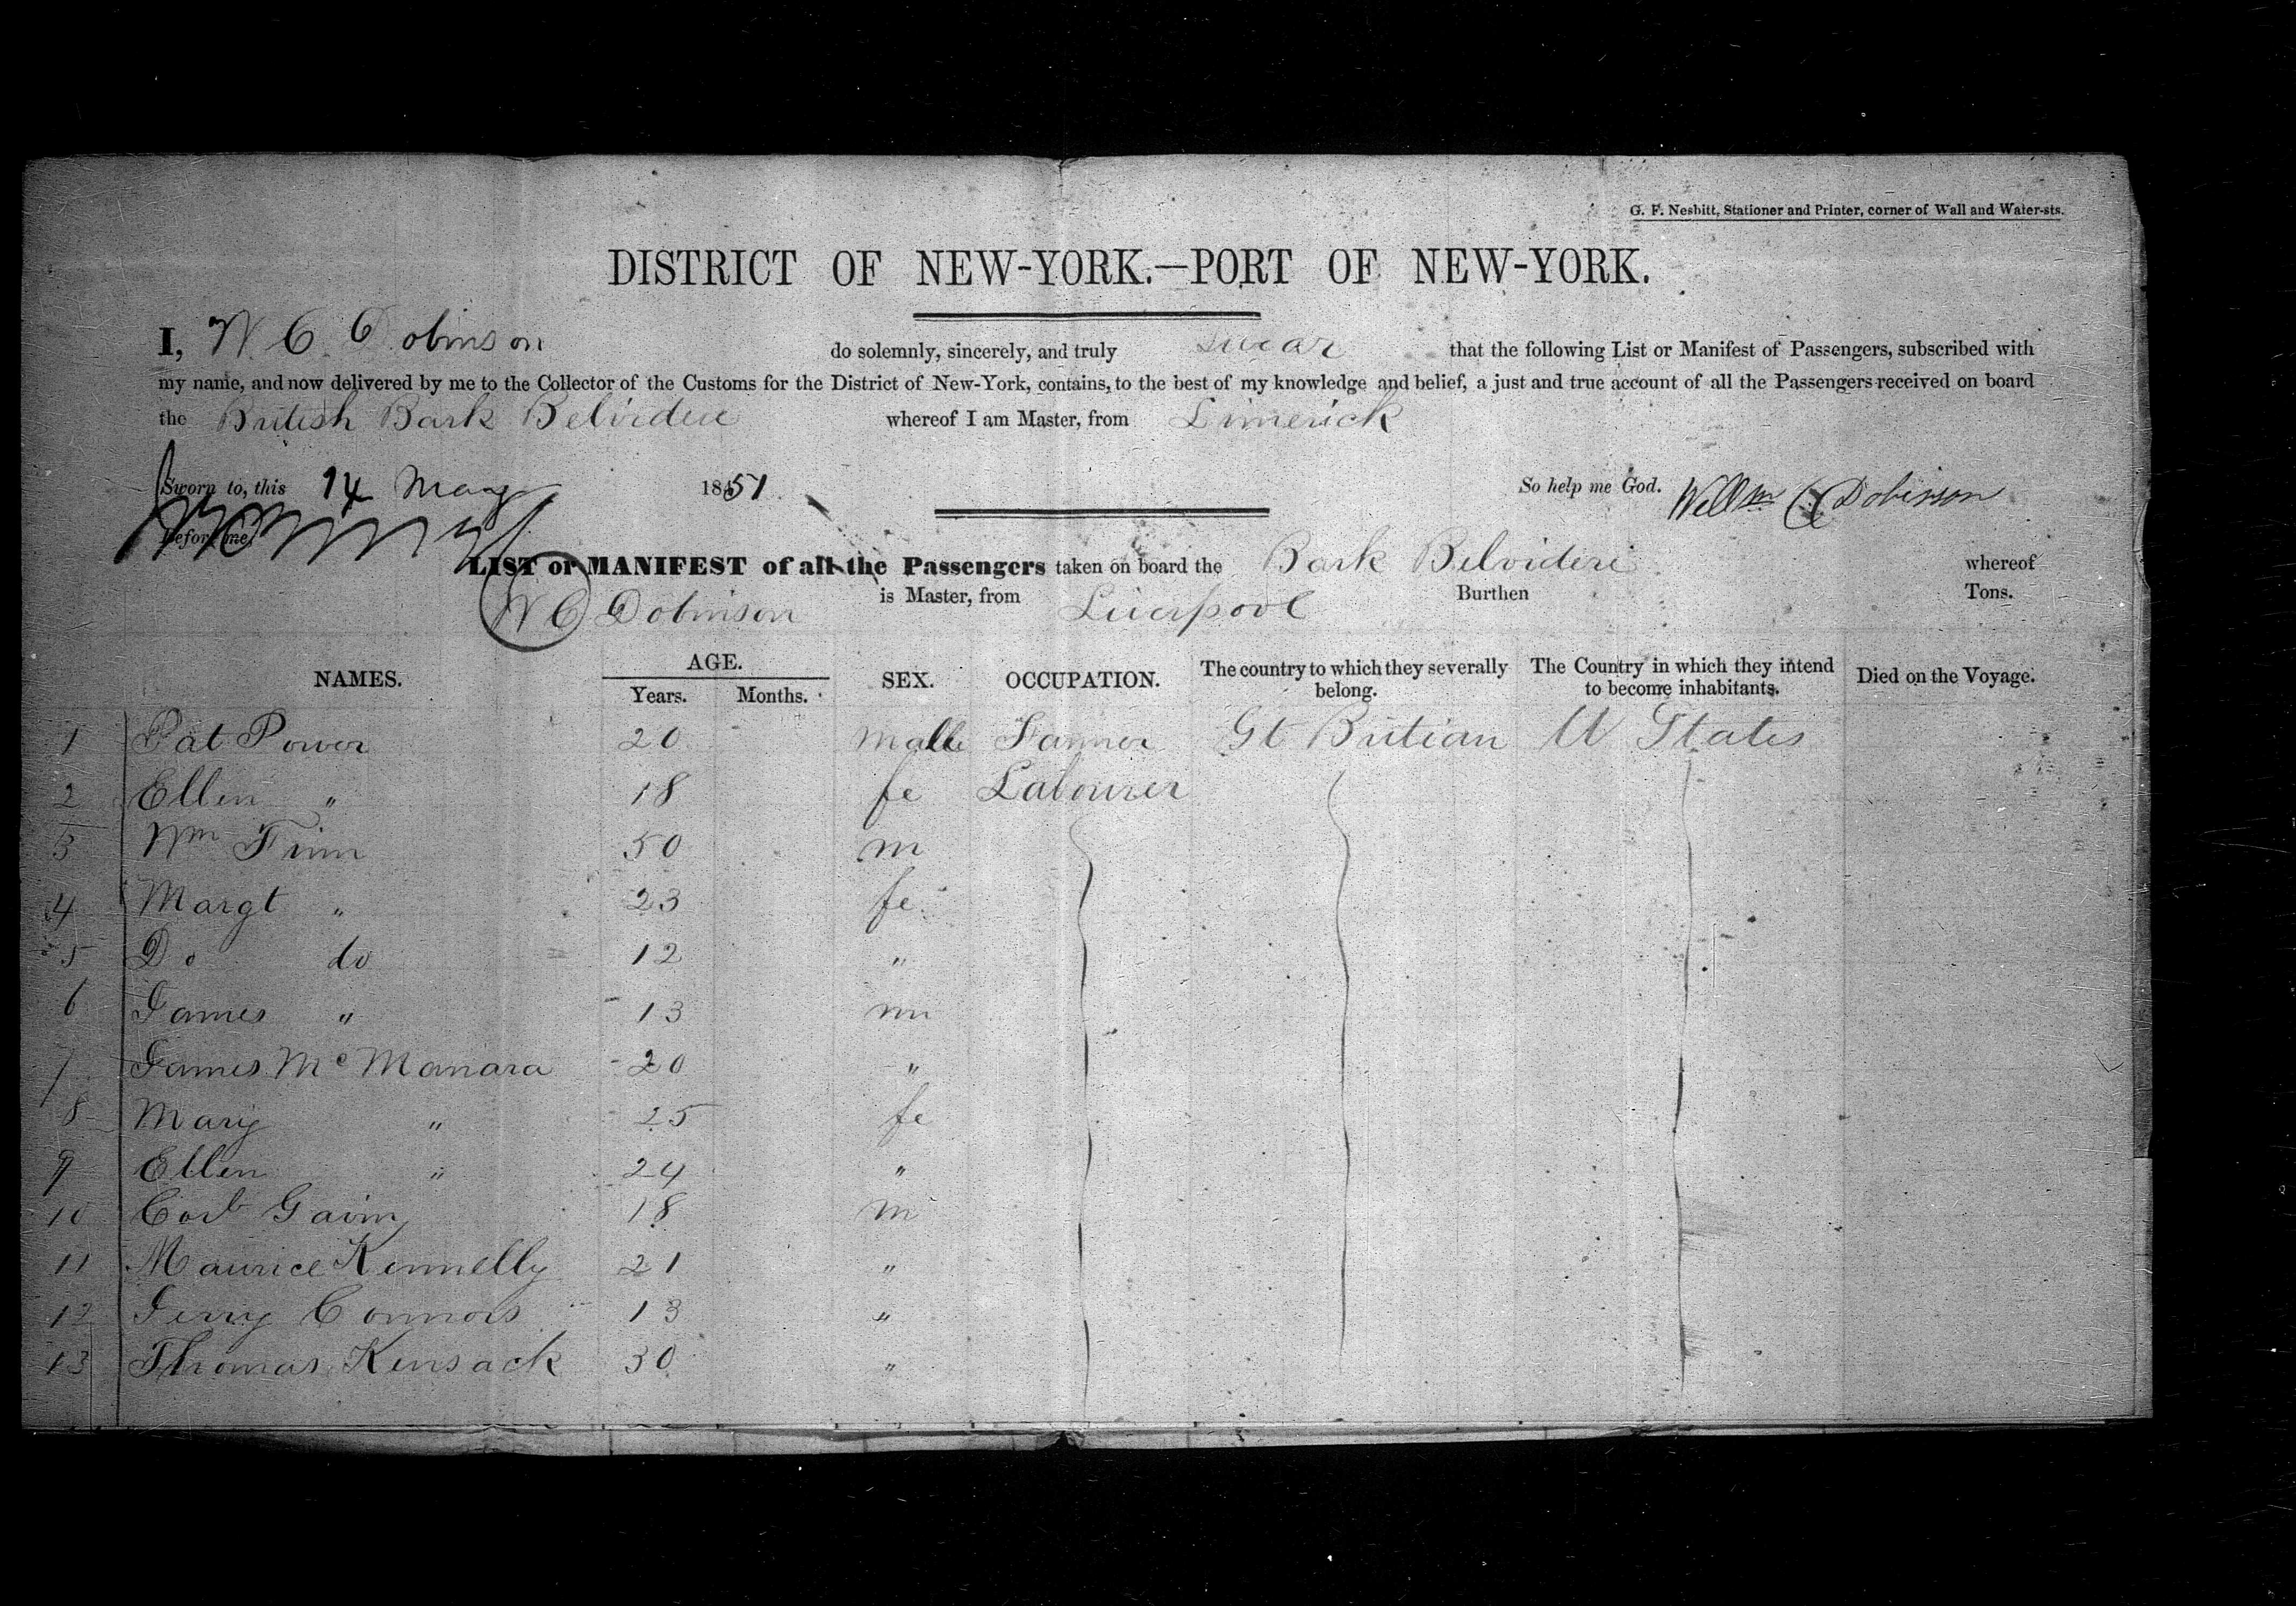 G. F. Nesbitt, Stationer and Printer, corner of Wall and Water-sts.
DISTRICT OF NEW-YORK.—PORT OF NEW-YORK.
I, W. C. Dobinson do solemnly, sincerely, and truly swear that the following List or Manifest of Passengers, subscribed with
my name, and now delivered by me to the Collector of the Customs for the District of New-York, contains, to the best of my knowledge and belief, a just and true account of all the Passengers received on board
the British Bark Belvidere whereof I am Master, from Limerick
Sworn to, this 14 May 1851 So help me God. Willm C Dobinson
Before me,
LIST or MANIFEST of all the Passengers taken on board the Bark Belvidere whereof
W C Dobinson is Master, from Liverpool Burthen Tons.
NAMES. AGE. Years. Months. SEX. OCCUPATION. The country to which they severally belong. The Country in which they intend to become inhabitants. Died on the Voyage.
1 Pat Power 20 Malle Farmer Gt Britian U States
2 Ellen " 18 fe Labourer
3 Wm Finn 50 m
4 Margt " 23 fe
5 Do do 12 "
6 James " 13 m
7 James Mc Manara 20 "
8 Mary " 25 fe
9 Ellen " 24 "
10 18 m
11 Maurice Kennelly 21 "
12 Jerry Connors 13 "
13 Thomas Kusack 30 "